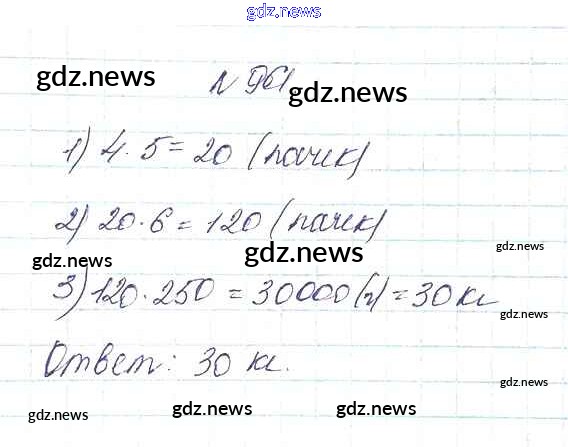 gdz.news
gdz.news
№ 961
gdz.news
1) 4·5=20 (пачек)
2) 20·6=120 (пачек)
gdz.news
gdz.news
gdz.news
3) 120·250=30000(г)=30кг
gdz.news
Ответ: 30 кг.
gdz.news
gdz.news
gdz.news
gdz.news